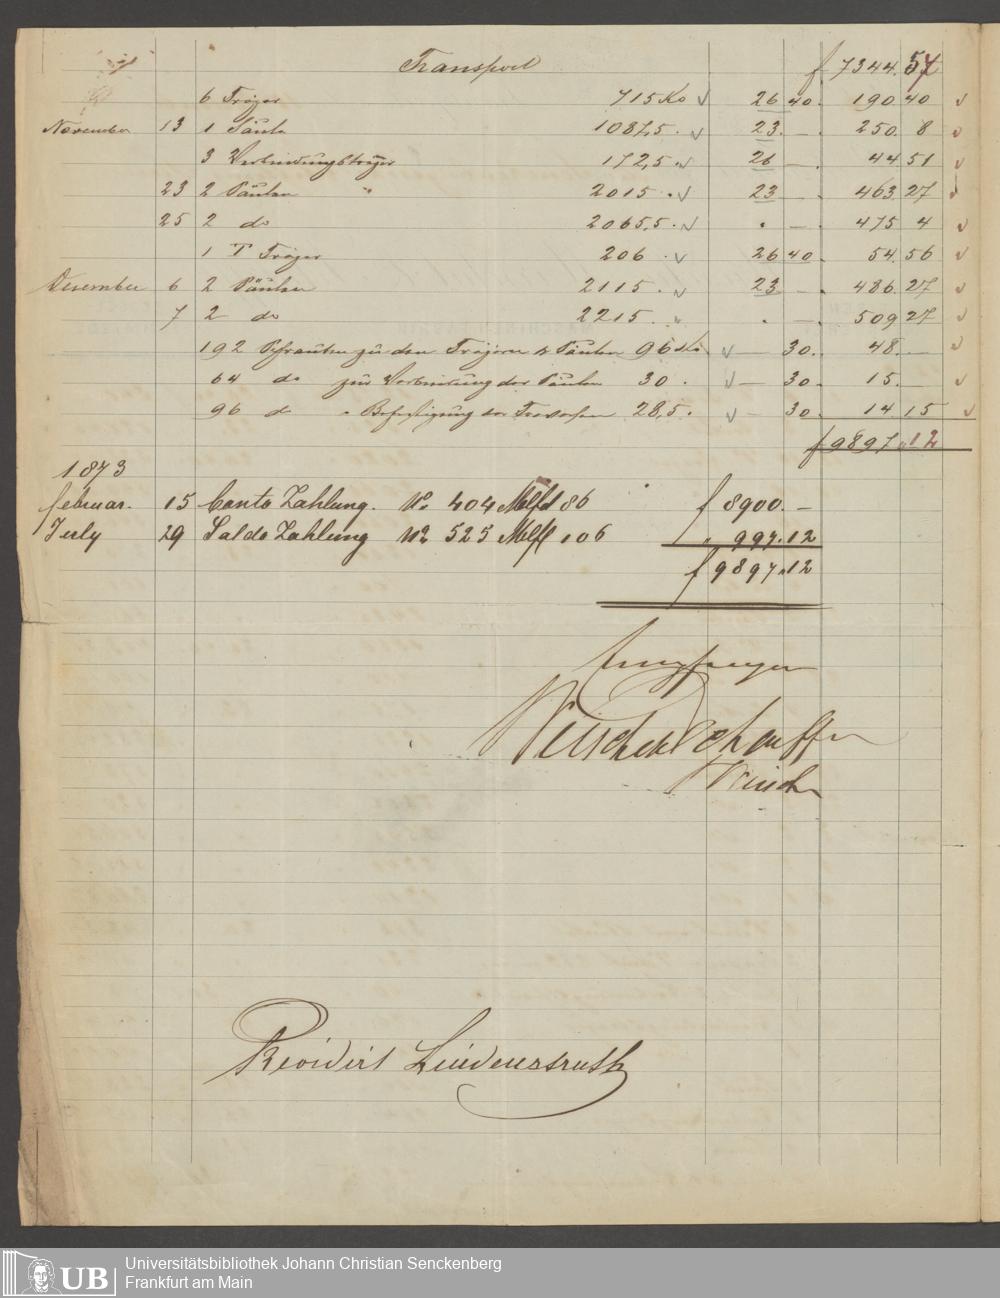 Transport f 7344. 57
6 Träger 715 Ko 26 40. 190 40
November 13 1 Säule 1087,5. 23. —. 250. 8
3 Verbindungsträger 172,5 26 —. 44 51
23 2 Säulen " 2015. 23 —. 463. 27
25 2 do 2065,5. . —. 475 4
1 T Träger 206. 26 40. 54. 56
Dezember 6 2 Säulen 2115. 23 —. 486. 27
7 2 do 2215. . —. 509 27
192 Schrauben zu den Trägern & Säulen 96 Ko — 30. 48. —
64 do zur Verbindung der Säulen 30. — 30. 15.
96 do " Befestigung der Traversen 28,5. — 30. 14 15
f 9897.12
1873
februar. 15 Conto Zahlung. No 404 86 f 8900. —
July 29 Saldo Zahlung No 525 106 " 997.12
f 9897.12
Empfangen
Revidirt Lindenstruth
UB Universitätsbibliothek Johann Christian Senckenberg
Frankfurt am Main